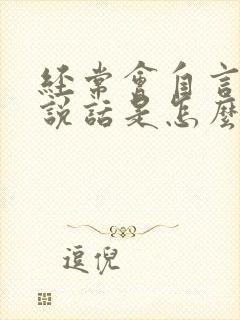 經常會自言
說話是怎麼
逗倪